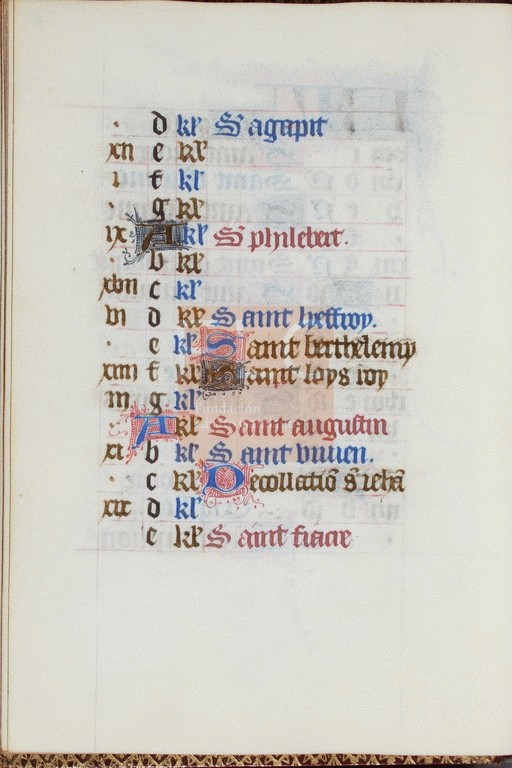 d kl' S' agapit
xii e kl'
i f kl'
g kl'
ix A kl' S' phylebert.
b kl'
xvii c kl'
vi d kl' Saint heffroy.
e kl' Saint berthelemy
xiiii f kl' Saint loys roy
iii g kl'
A kl' Saint augustin
xi b kl' Saint vivien.
c kl' Decollatio s' iehan
xix d kl'
e kl' Saint fiacre